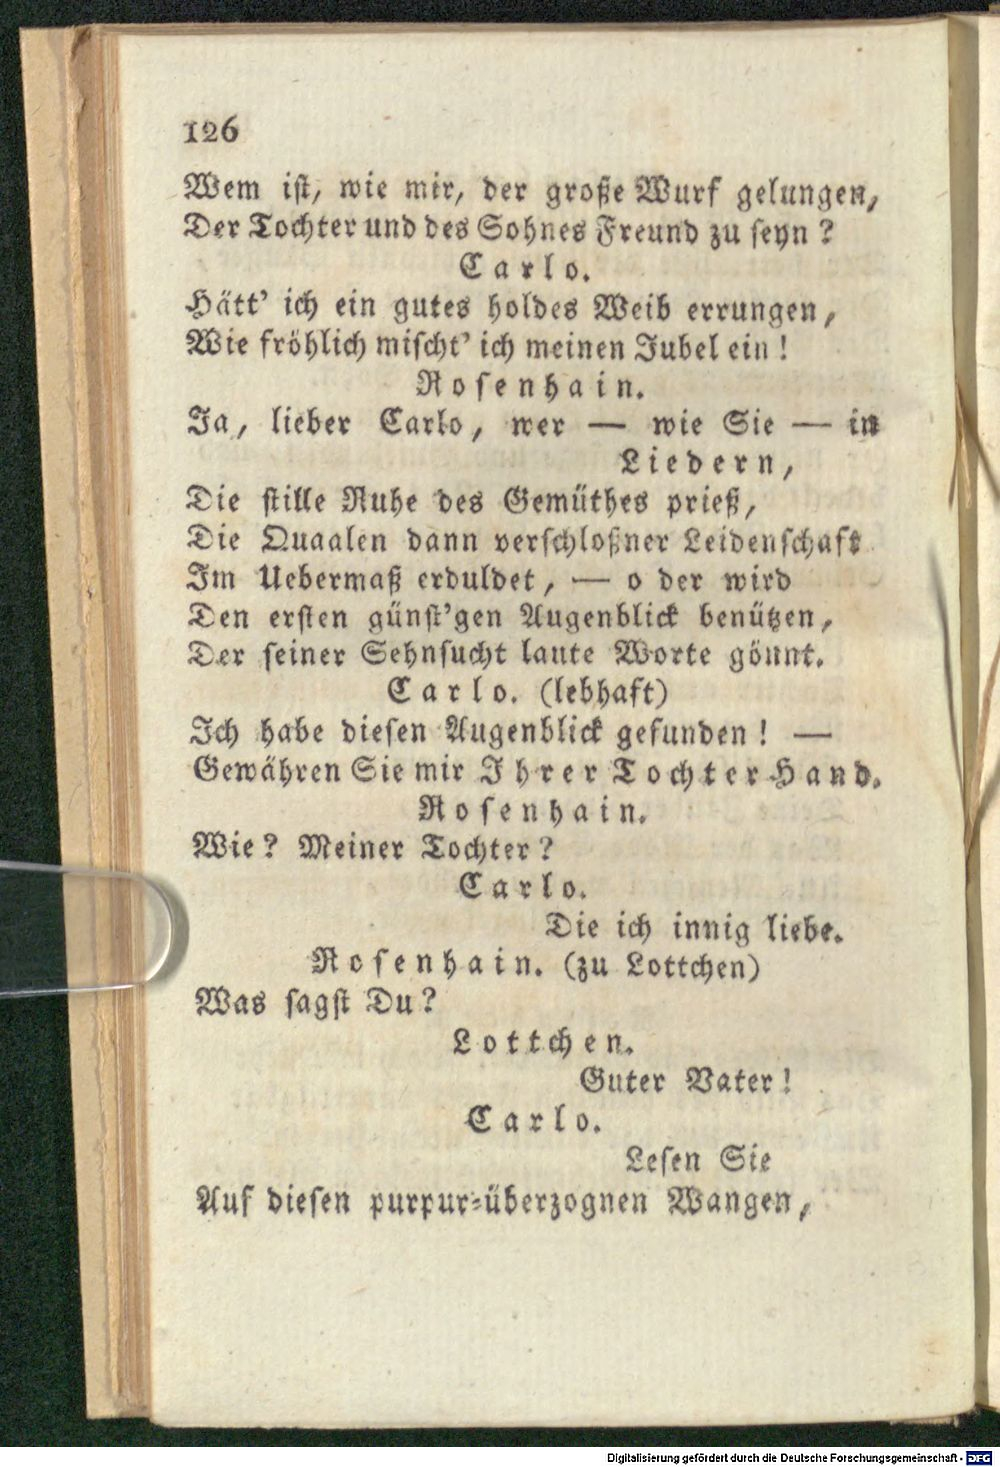 126
Wem ist, wie mir, der große Wurf gelungen,
Der Tochter und des Sohnes Freund zu seyn?
Carlo.
Hätt' ich ein gutes holdes Weib errungen,
Wie fröhlich mischt' ich meinen Jubel ein!
Rosenhain.
Ja, lieber Carlo, wer — wie Sie — in
Liedern,
Die stille Ruhe des Gemüthes prieß,
Die Quaalen dann verschloßner Leidenschaft
Im Uebermaß erduldet, — o der wird
Den ersten günst'gen Augenblick benützen,
Der seiner Sehnsucht laute Worte gönnt.
Carlo. (lebhaft)
Ich habe diesen Augenblick gefunden! —
Gewähren Sie mir Ihrer Tochter Hand.
Rosenhain.
Wie? Meiner Tochter?
Carlo.
Die ich innig liebe.
Rosenhain. (zu Lottchen)
Was sagst Du?
Lottchen.
Guter Vater!
Carlo.
Lesen Sie
Auf diesen purpur-überzognen Wangen,
Digitalisierung gefördert durch die Deutsche Forschungsgemeinschaft - DFG